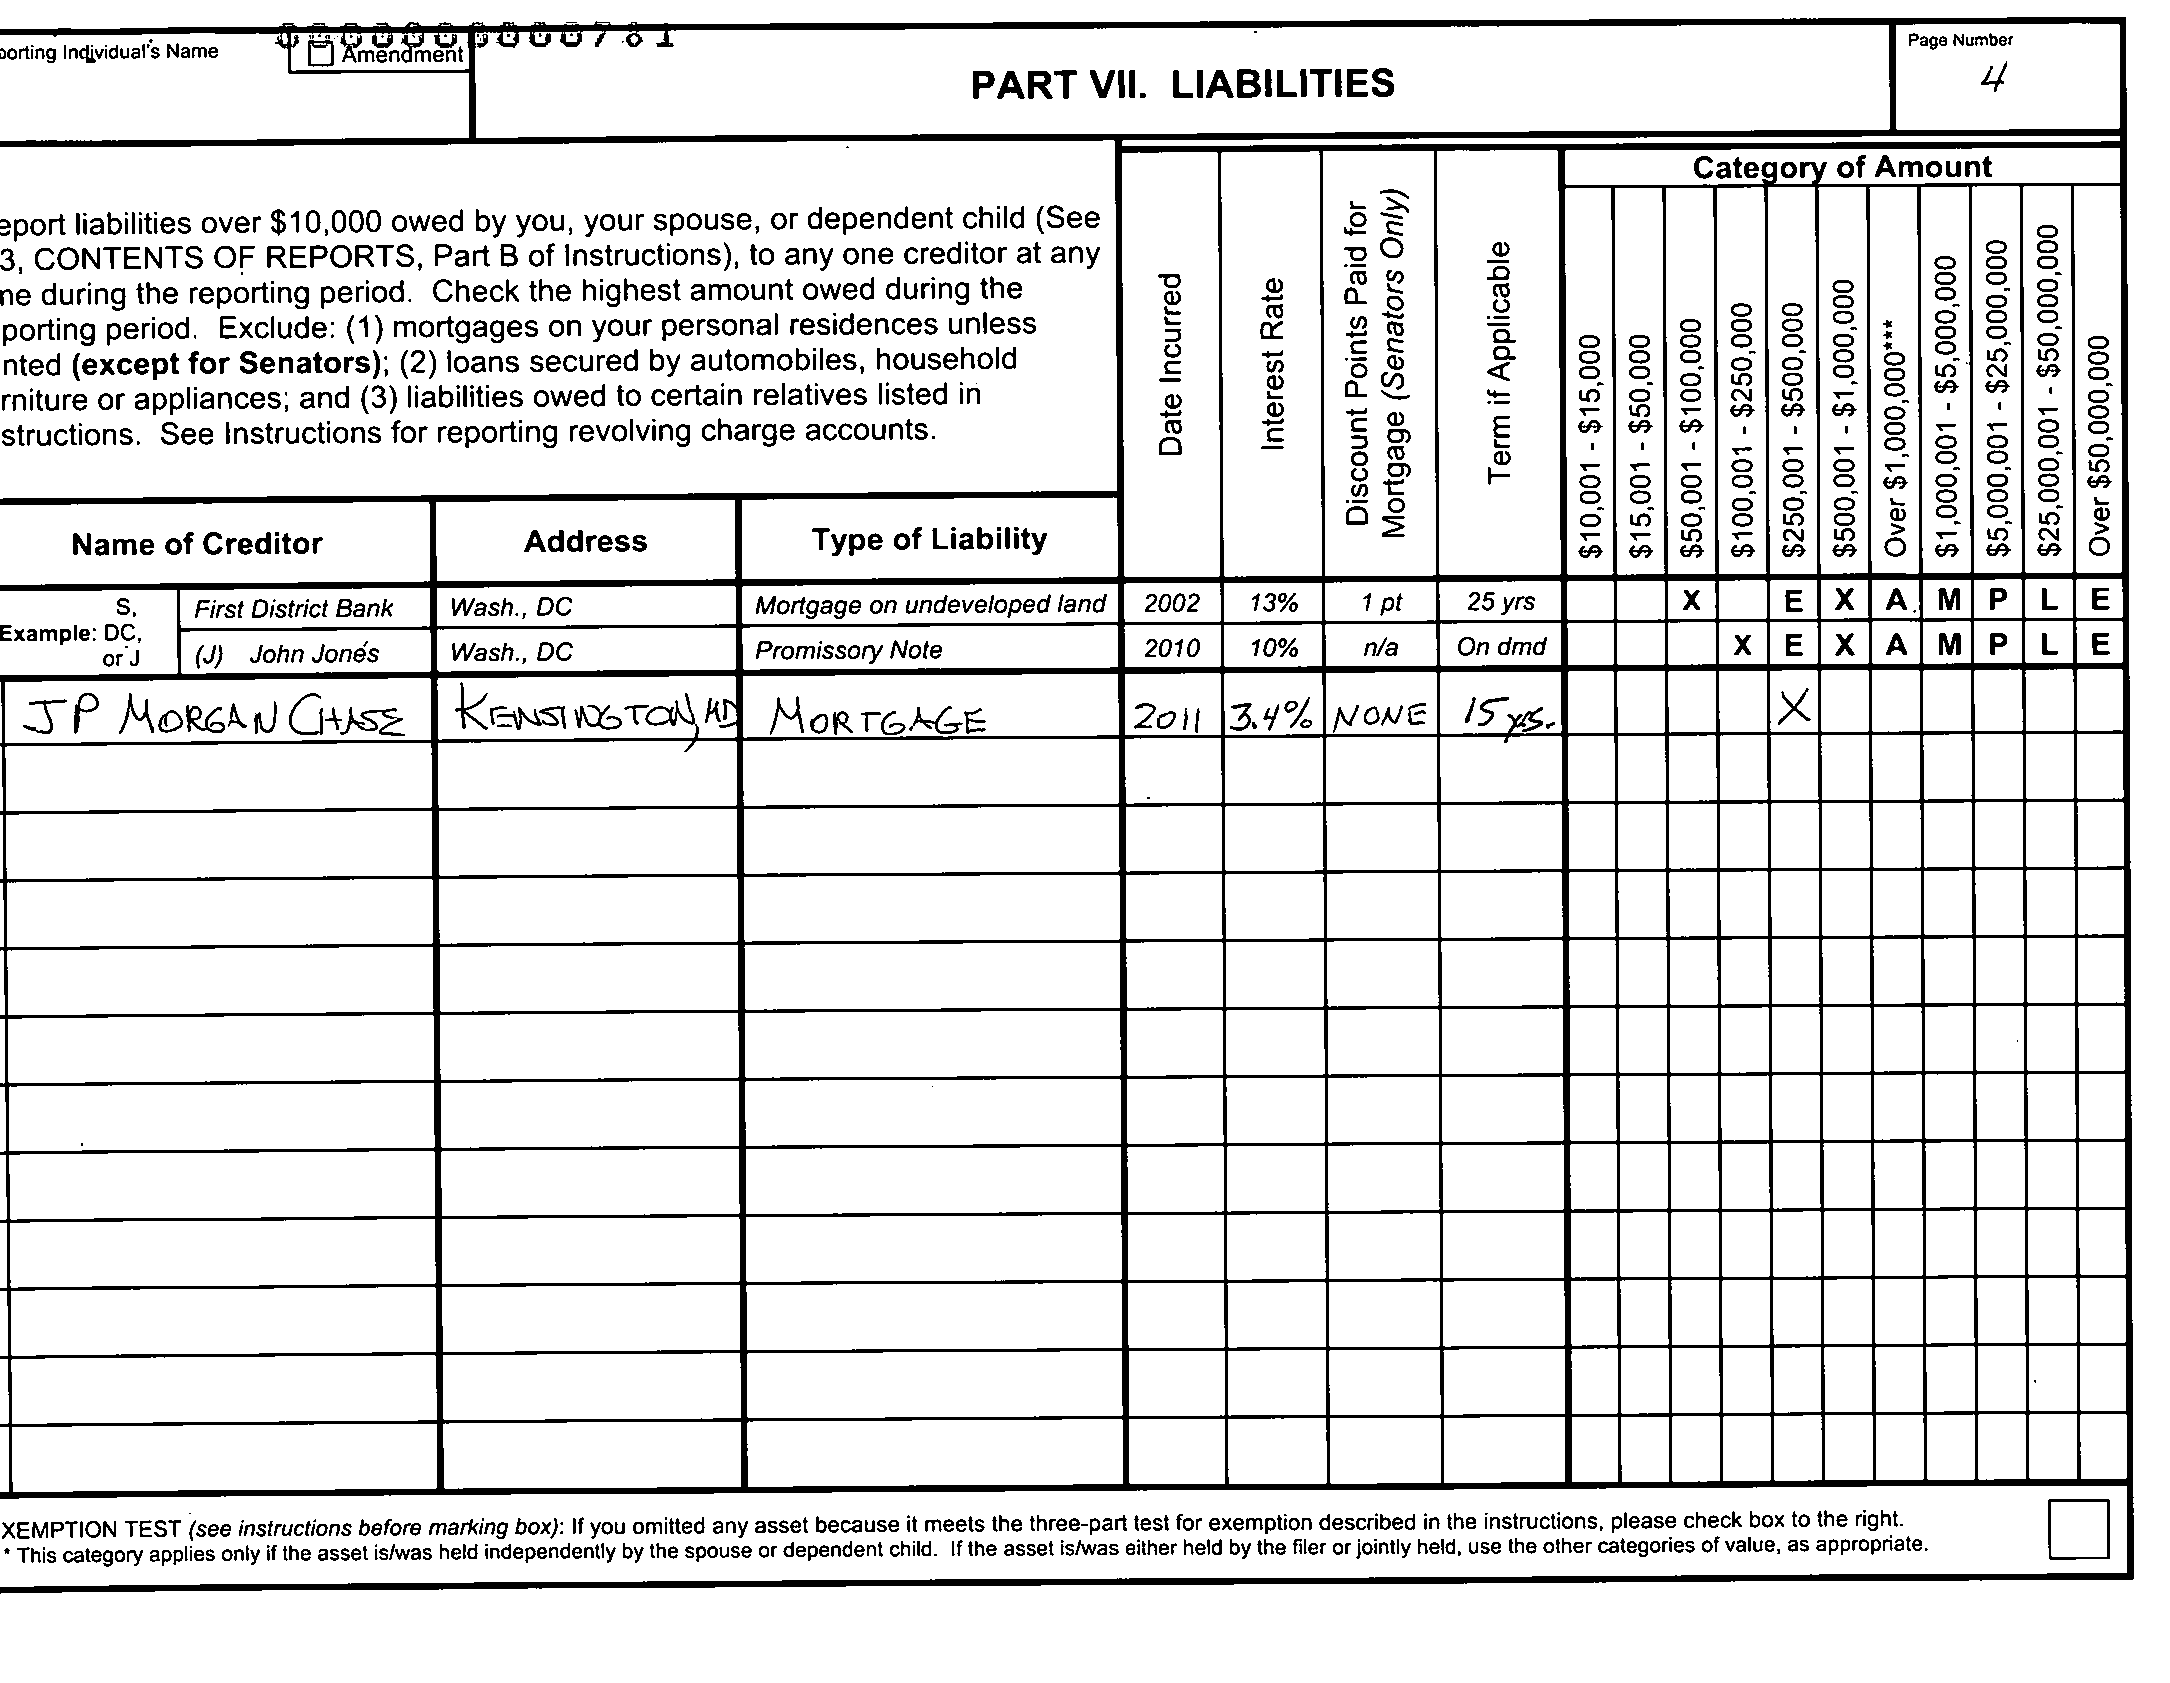 000000000781
porting Individual's Name
Amendment
PART VII. LIABILITIES
Page Number
4
eport liabilities over $10,000 owed by you, your spouse, or dependent child (See
3, CONTENTS OF REPORTS, Part B of Instructions), to any one creditor at any
me during the reporting period. Check the highest amount owed during the
porting period. Exclude: (1) mortgages on your personal residences unless
nted (except for Senators); (2) loans secured by automobiles, household
rniture or appliances; and (3) liabilities owed to certain relatives listed in
structions. See Instructions for reporting revolving charge accounts.
Date Incurred
Interest Rate
Discount Points Paid for
Mortgage (Senators Only)
Term if Applicable
Category of Amount
$10,001 - $15,000
$15,001 - $50,000
$50,001 - $100,000
$100,001 - $250,000
$250,001 - $500,000
$500,001 - $1,000,000
Over $1,000,000***
$1,000,001 - $5,000,000
$5,000,001 - $25,000,000
$25,000,001 - $50,000,000
Over $50,000,000
Name of Creditor Address Type of Liability
Example: S, DC, or J
First District Bank Wash., DC Mortgage on undeveloped land 2002 13% 1 pt 25 yrs X E X A M P L E
(J) John Jones Wash., DC Promissory Note 2010 10% n/a On dmd X E X A M P L E
JP MORGAN CHASE KENSINGTON, MD MORTGAGE 2011 3.4% NONE 15 yrs. X
XEMPTION TEST (see instructions before marking box): If you omitted any asset because it meets the three-part test for exemption described in the instructions, please check box to the right.
* This category applies only if the asset is/was held independently by the spouse or dependent child. If the asset is/was either held by the filer or jointly held, use the other categories of value, as appropriate.